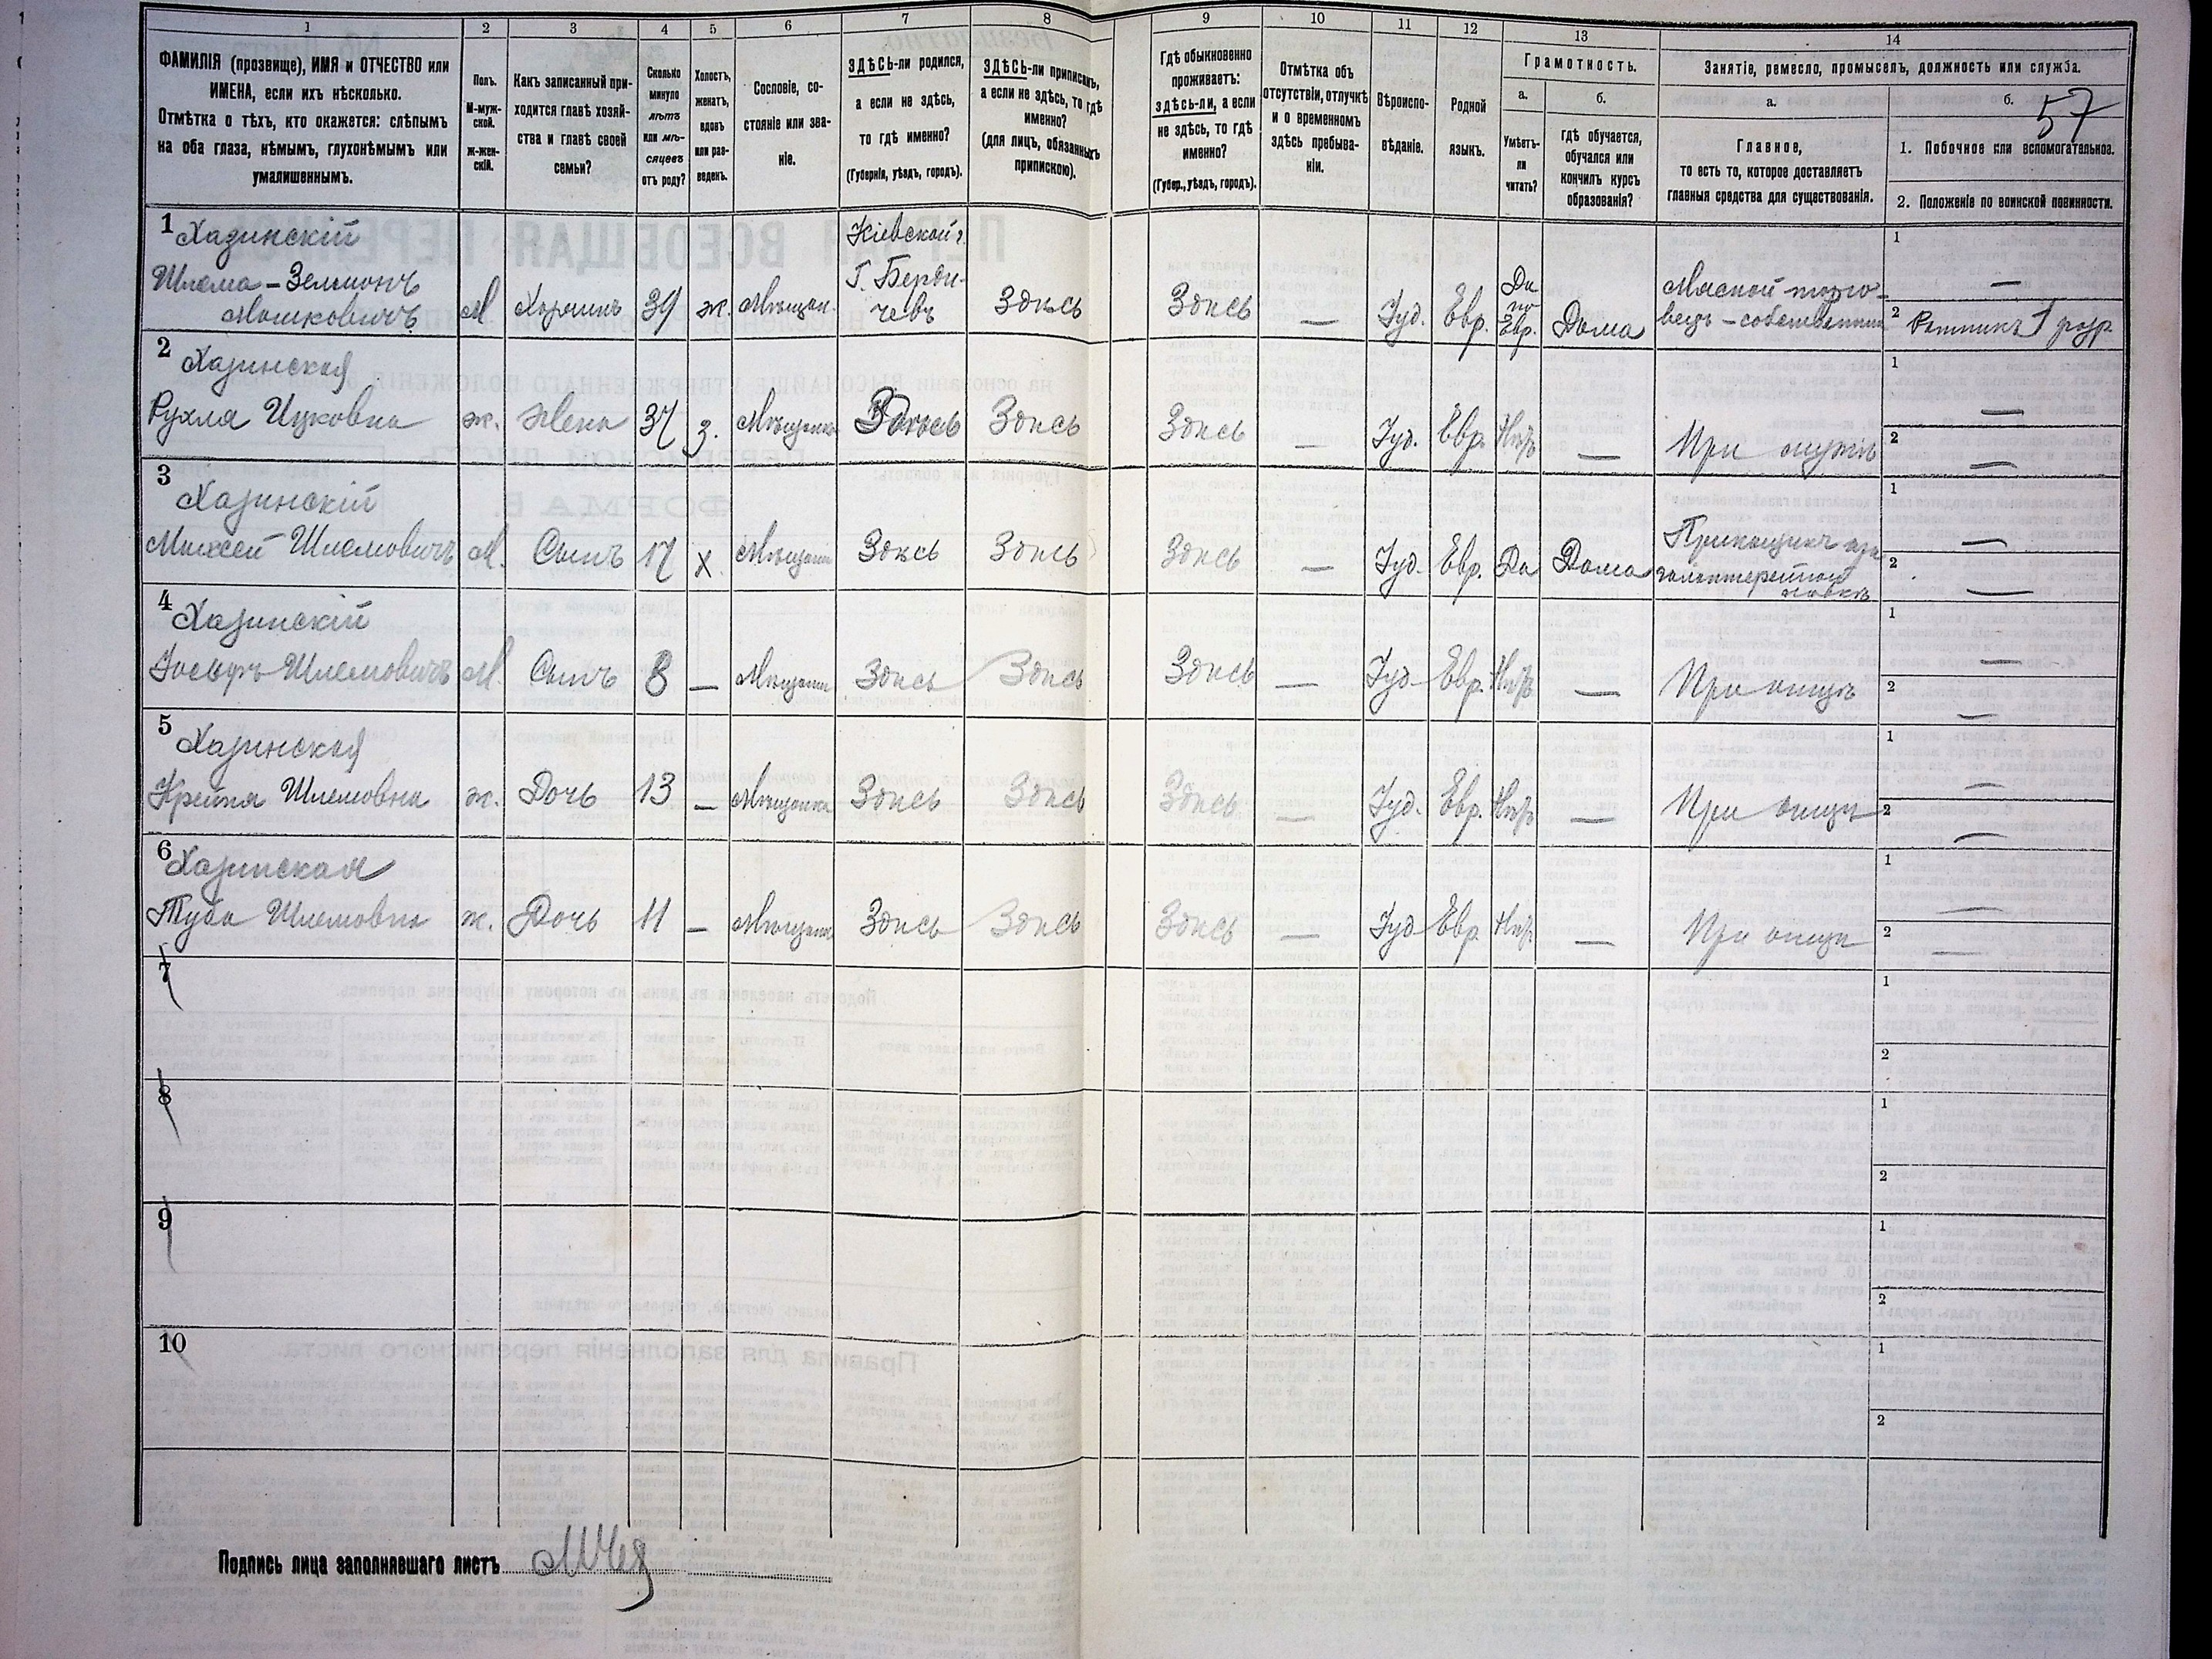 1 2 3 4 5 6 7 8 9 10 11 12 13 14
ФАМИЛІЯ (прозвище), ИМЯ и ОТЧЕСТВО или
ИМЕНА, если ихъ нѣсколько.
Отмѣтка о тѣхъ, кто окажется: слѣпымъ
на оба глаза, нѣмымъ, глухонѣмымъ или
умалишеннымъ.
Полъ.
М-муж-
ской.
ж-жен-
скій.
Какъ записанный при-
ходится главѣ хозяй-
ства и главѣ своей
семьи?
Сколько
минуло
лѣтъ
или мѣ-
сяцевъ
отъ роду?
Холостъ,
женатъ,
вдовъ
или раз-
веденъ.
Сословіе, со-
стояніе или зва-
ніе.
ЗДѢСЬ-ли родился,
а если не здѣсь,
то гдѣ именно?
(Губернія, уѣздъ, городъ).
ЗДѢСЬ-ли приписанъ,
а если не здѣсь, то гдѣ
именно?
(для лицъ, обязанныхъ
припискою).
Гдѣ обыкновенно
проживаетъ:
здѣсь-ли, а если
не здѣсь, то гдѣ
именно?
(Губер., уѣздъ, городъ).
Отмѣтка объ
отсутствіи, отлучкѣ
и о временномъ
здѣсь пребыва-
ніи.
Вѣроиспо-
вѣданіе.
Родной
языкъ.
Грамотность.
а.
Умѣетъ-
ли
читать?
б.
гдѣ обучается,
обучался или
кончилъ курсъ
образованія?
Занятіе, ремесло, промыселъ, должность или служба.
а.
Главное,
то есть то, которое доставляетъ
главныя средства для существованія.
б.
57
1. Побочное или вспомогательное.
2. Положеніе по воинской повинности.
1 Хазинскій
Шлема-Зельмонъ
Мошковичъ
М Хозяинъ 39 ж. Мѣщан.
Кіевской г.
Г. Берди-
чевъ
Здѣсь Здѣсь — Іуд. Евр.
Да
по
Евр.
Дома
Мясной торго-
вецъ-собственник
1 —
2 Ратникъ 1 разр.
2 Хазинская
Рухля Ицковна ж. Жена 37 з. Мѣщанка Здѣсь Здѣсь Здѣсь — Іуд. Евр. Нѣтъ — При мужѣ
1 —
2 —
3 Хазинскій
Моисей Шлемовичъ М. Сынъ 17 х Мѣщанин Здѣсь Здѣсь Здѣсь — Іуд. Евр. Да Дома
Прикащикъ
галантерейной
лавкѣ
1 —
2 —
4 Хазинскій
Іосифъ Шлемовичъ М. Сынъ 8 — Мѣщанин Здѣсь Здѣсь Здѣсь — Іуд Евр. Нѣтъ — При отцѣ
1 —
2 —
5 Хазинская
Крейня Шлемовна ж. Дочь 13 — Мѣщанка Здѣсь Здѣсь Здѣсь — Іуд. Евр. Нѣтъ — При отцѣ
1 —
2 —
6 Хазинская
Туба Шлемовна ж. Дочь 11 — Мѣщанка Здѣсь Здѣсь Здѣсь — Іуд Евр. Нѣт — При отцѣ
1 —
2 —
7
1
2
8
1
2
9
1
2
10
1
2
Подпись лица заполнявшаго листъ